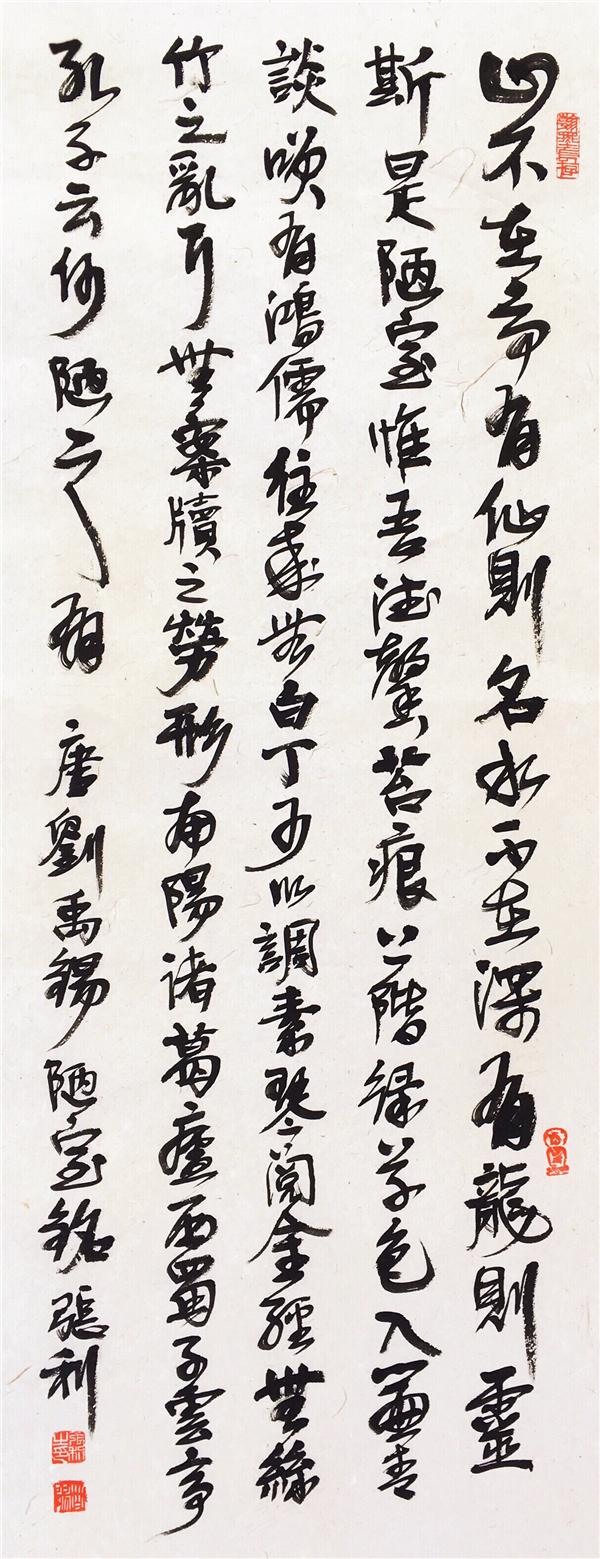 山不在高有仙則名水不在深有龍則靈
斯是陋室惟吾德馨苔痕上階綠草色入簾青
談咲有鴻儒往來無白丁可以調素琴閱金經無絲
竹之亂耳無案牘之勞形南陽諸葛廬西蜀子雲亭
孔子云何陋之有 唐劉禹錫陋室銘張利